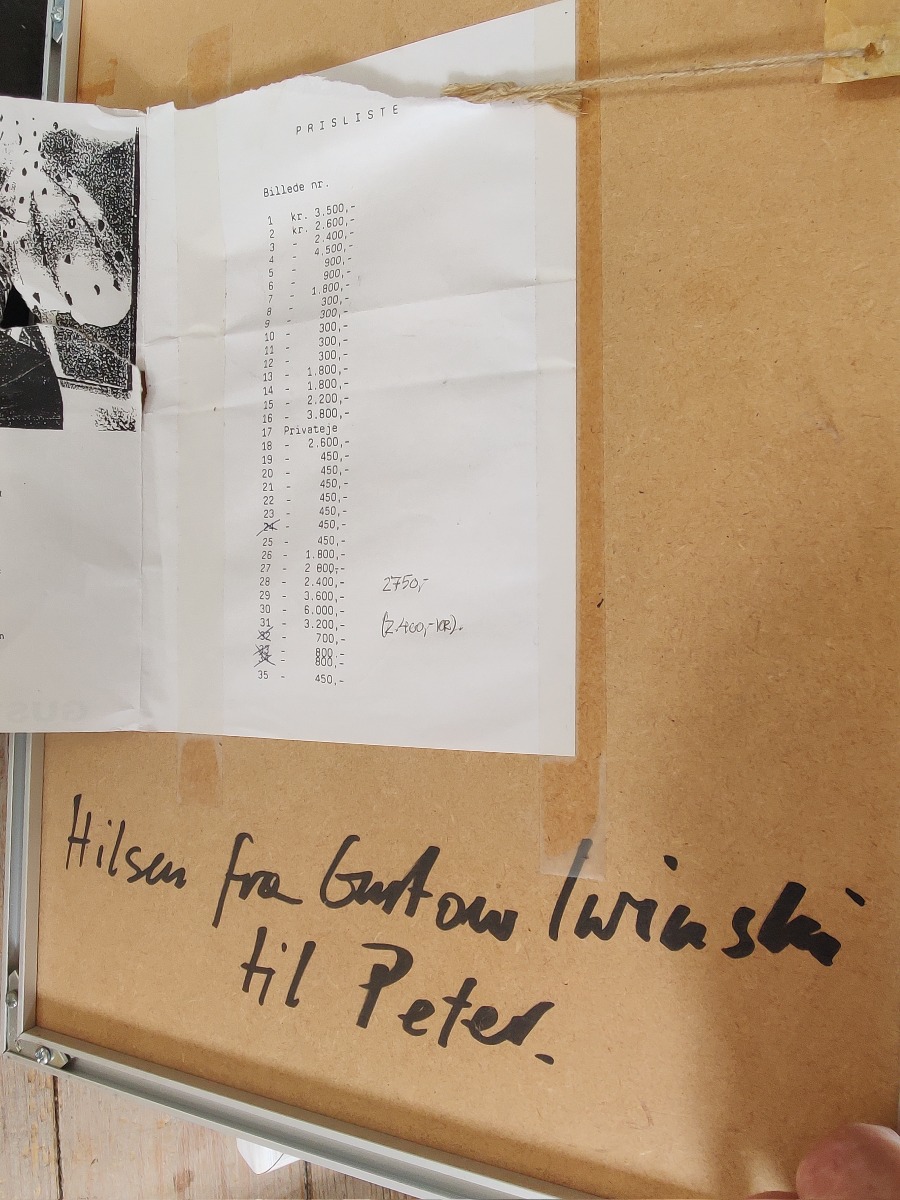 PRISLISTE
Billede nr.
1 kr. 3.500,-
2 kr. 2.600,-
3 - 2.400,-
4 - 4.500,-
5 - 900,-
6 - 900,-
7 - 1.800,-
8 - 300,-
9 - 300,-
10 - 300,-
11 - 300,-
12 - 300,-
13 - 1.800,-
14 - 1.800,-
15 - 2.200,-
16 - 3.800,-
17 Privateje
18 - 2.600,-
19 - 450,-
20 - 450,-
21 - 450,-
22 - 450,-
23 - 450,-
24 - 450,-
25 - 450,-
26 - 1.800,-
27 - 2 800,-
28 - 2.400,- 2750,-
29 - 3.600,-
30 - 6.000,-
31 - 3.200,- (2.400,-KR).
32 - 700,-
33 - 800,-
34 - 800,-
35 - 450,-
Hilsen fra Gustow Iwinski
til Peter.